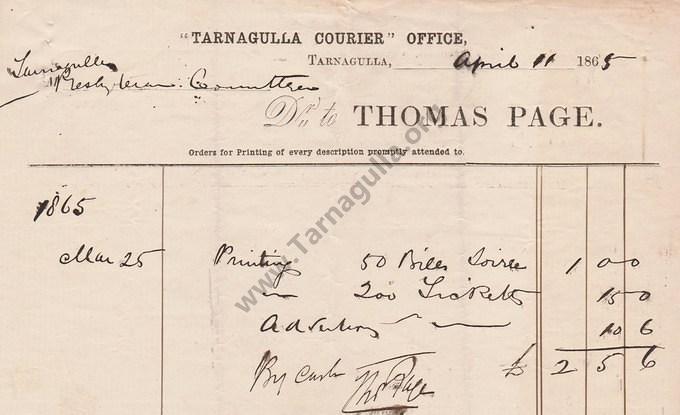 "TARNAGULLA COURIER" OFFICE,
TARNAGULLA, April 11 1865
Tarnagulla
Presbyterian Committee
Dr. to THOMAS PAGE.
Orders for Printing of every description promptly attended to.
1865
Mar 25 Printing 50 Bills Soiree 1 0 0
" 200 Tickets 15 0
Advertising 10 6
£ 2 5 6
By Cash Thos Page
www.Tarnagulla.org